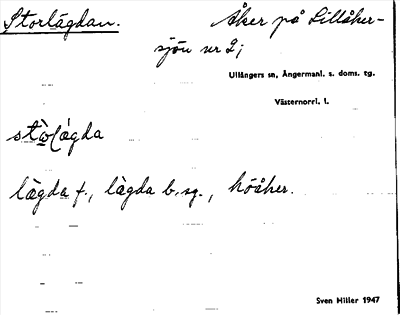 Storlägdan. Åker på Lillåker-
sjön nr 2;
Ullångers sn, Ångermanl. s. doms. tg.
Västernorrl. l.
lägda f., lägda b.sg., höåker.
Sven Hiller 1947